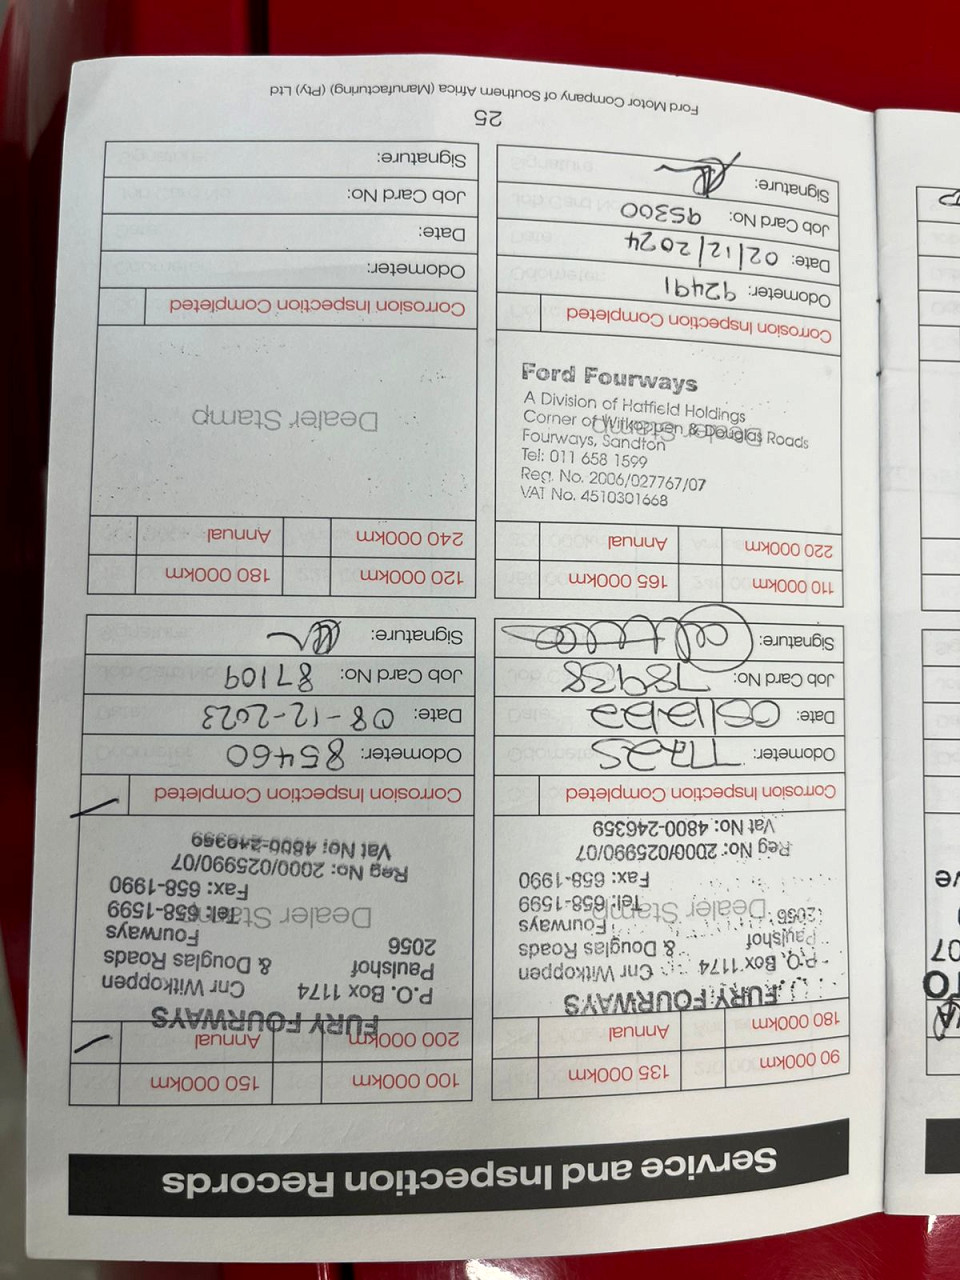 Service and Inspection Records
90 000km 135 000km
180 000km Annual
FURY FOURWAYS
P.O. Box 1174 Cnr Witkoppen
Paulshof & Douglas Roads
2056 Fourways
Dealer Stamp
Tel: 658-1599
Fax: 658-1990
Reg No: 2000/025990/07
Vat No: 4800-246359
Corrosion Inspection Completed
Odometer: 77225
Date: 05/12/22
Job Card No: 78938
Signature:
100 000km 150 000km
200 000km Annual
FURY FOURWAYS
P.O. Box 1174 Cnr Witkoppen
Paulshof & Douglas Roads
2056 Fourways
Dealer Stamp
Tel: 658-1599
Fax: 658-1990
Reg No: 2000/025990/07
Vat No: 4800-246359
Corrosion Inspection Completed
Odometer: 85460
Date: 08-12-2023
Job Card No: 87109
Signature:
110 000km 165 000km
220 000km Annual
Dealer Stamp
Ford Fourways
A Division of Hatfield Holdings
Corner of Witkoppen & Douglas Roads
Fourways, Sandton
Tel: 011 658 1599
Reg. No. 2006/027767/07
VAT No. 4510301668
Corrosion Inspection Completed
Odometer: 92491
Date: 02/12/2024
Job Card No: 95300
Signature:
120 000km 180 000km
240 000km Annual
Dealer Stamp
Corrosion Inspection Completed
Odometer:
Date:
Job Card No:
Signature:
25
Ford Motor Company of Southern Africa (Manufacturing) (Pty) Ltd